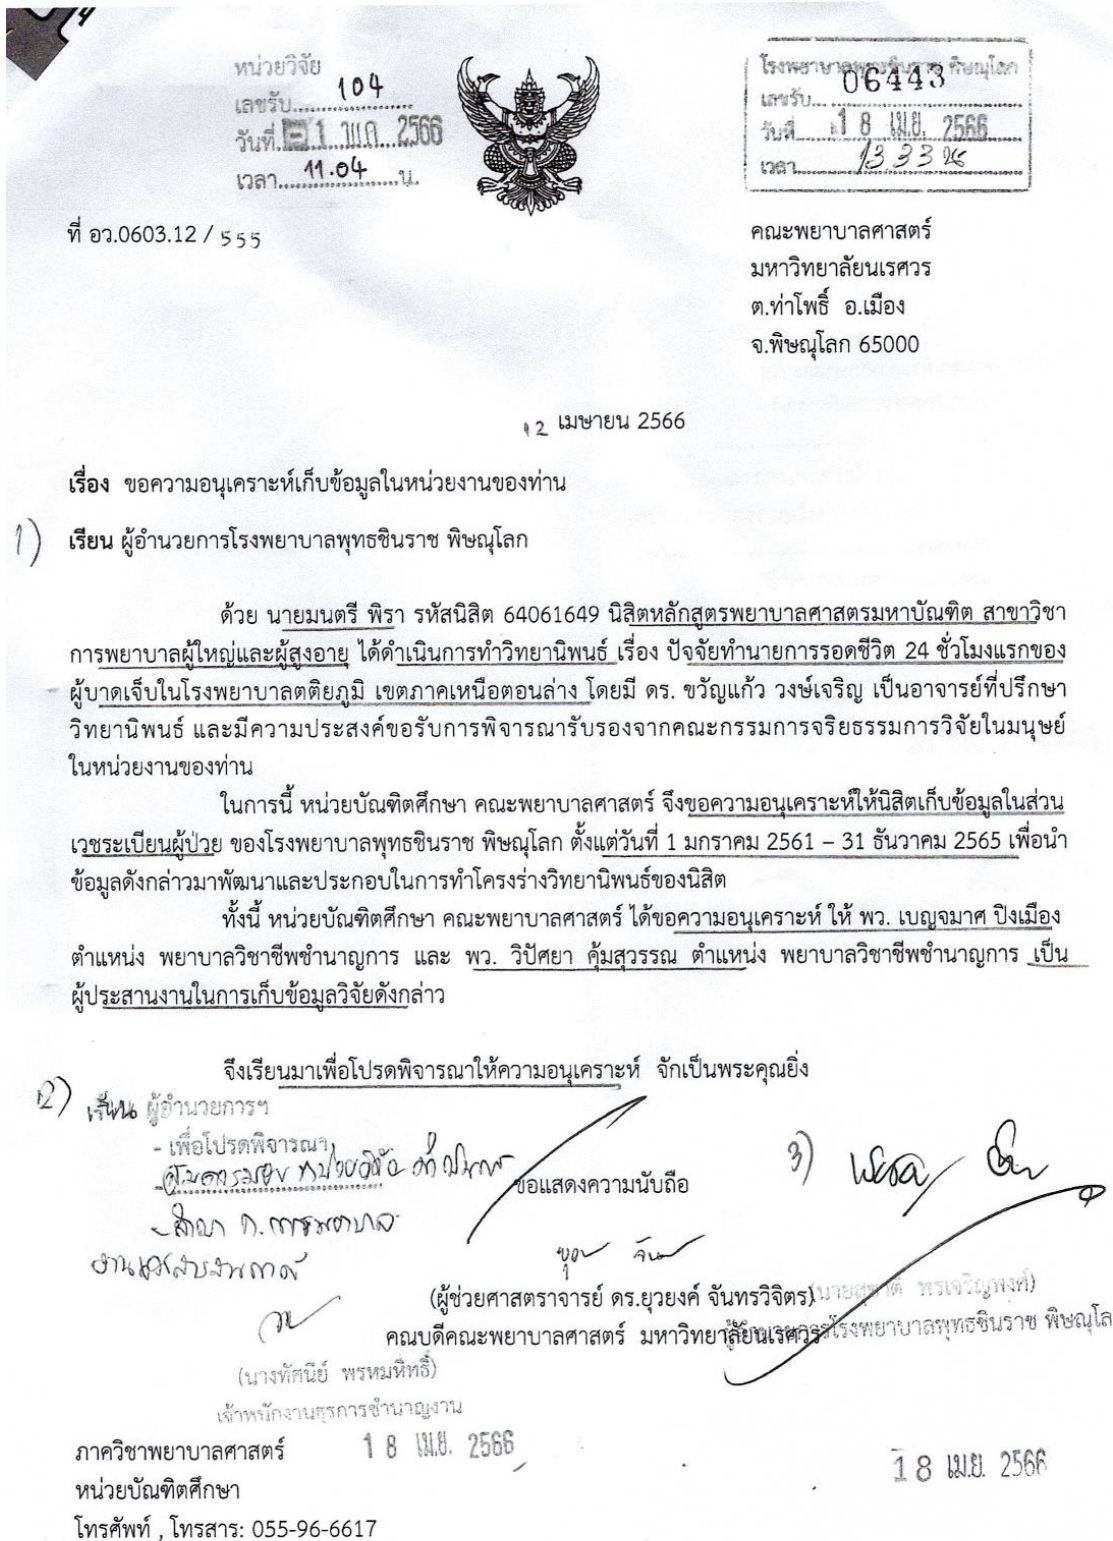 หน่วยวิจัย
เลขรับ 104
วันที่ 2566
เวลา 11.04 น.
โรงพยาบาลพุทธชินราช พิษณุโลก
เลขรับ 06443
วันที่ 18 เม.ย. 2566
เวลา 13.33 น.
ที่ อว.0603.12 / 555
คณะพยาบาลศาสตร์
มหาวิทยาลัยนเรศวร
ต.ท่าโพธิ์ อ.เมือง
จ.พิษณุโลก 65000
12 เมษายน 2566
เรื่อง ขอความอนุเคราะห์เก็บข้อมูลในหน่วยงานของท่าน
1) เรียน ผู้อำนวยการโรงพยาบาลพุทธชินราช พิษณุโลก
ด้วย นายมนตรี พิรา รหัสนิสิต 64061649 นิสิตหลักสูตรพยาบาลศาสตรมหาบัณฑิต สาขาวิชา
การพยาบาลผู้ใหญ่และผู้สูงอายุ ได้ดำเนินการทำวิทยานิพนธ์ เรื่อง ปัจจัยทำนายการรอดชีวิต 24 ชั่วโมงแรกของ
ผู้บาดเจ็บในโรงพยาบาลตติยภูมิ เขตภาคเหนือตอนล่าง โดยมี ดร. ขวัญแก้ว วงษ์เจริญ เป็นอาจารย์ที่ปรึกษา
วิทยานิพนธ์ และมีความประสงค์ขอรับการพิจารณารับรองจากคณะกรรมการจริยธรรมการวิจัยในมนุษย์
ในหน่วยงานของท่าน
ในการนี้ หน่วยบัณฑิตศึกษา คณะพยาบาลศาสตร์ จึงขอความอนุเคราะห์ให้นิสิตเก็บข้อมูลในส่วน
เวชระเบียนผู้ป่วย ของโรงพยาบาลพุทธชินราช พิษณุโลก ตั้งแต่วันที่ 1 มกราคม 2561 – 31 ธันวาคม 2565 เพื่อนำ
ข้อมูลดังกล่าวมาพัฒนาและประกอบในการทำโครงร่างวิทยานิพนธ์ของนิสิต
ทั้งนี้ หน่วยบัณฑิตศึกษา คณะพยาบาลศาสตร์ ได้ขอความอนุเคราะห์ ให้ พว. เบญจมาศ ปิงเมือง
ตำแหน่ง พยาบาลวิชาชีพชำนาญการ และ พว. วิปัศยา คุ้มสุวรรณ ตำแหน่ง พยาบาลวิชาชีพชำนาญการ เป็น
ผู้ประสานงานในการเก็บข้อมูลวิจัยดังกล่าว
จึงเรียนมาเพื่อโปรดพิจารณาให้ความอนุเคราะห์ จักเป็นพระคุณยิ่ง
2) เรียน ผู้อำนวยการฯ
- เพื่อโปรดพิจารณา
3)
ขอแสดงความนับถือ
(ผู้ช่วยศาสตราจารย์ ดร.ยุวยงค์ จันทรวิจิตร)
(นายสุชาติ พรเจริญพงศ์)
คณบดีคณะพยาบาลศาสตร์ มหาวิทยาลัยนเรศวร
ผู้อำนวยการโรงพยาบาลพุทธชินราช พิษณุโล
(นางทัศนีย์ พรหมหิทธิ์)
เจ้าพนักงานธุรการชำนาญงาน
18 เม.ย. 2566
18 เม.ย. 2566
ภาควิชาพยาบาลศาสตร์
หน่วยบัณฑิตศึกษา
โทรศัพท์ , โทรสาร: 055-96-6617